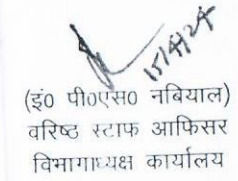 15/4/24
(इं0 पी0एस0 नबियाल)
वरिष्ठ स्टाफ आफिसर
विभागाध्यक्ष कार्यालय